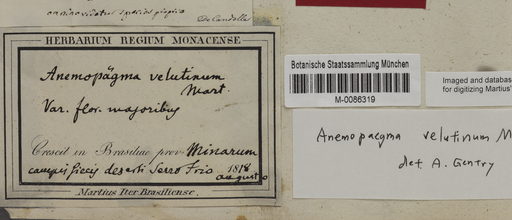 De Candolle
HERBARIUM REGIUM MONACENSE.
Anemopägma velutinum
Mart.
Var. flor. majoribus
Crescit in Brasiliae prov. Minarum
campis siccis deserti Serro Frio 1818
augusto
Martius Iter Brasiliense.
Botanische Staatssammlung München
M-0086319
Imaged and databas
for digitizing Martius'
Anemopaegma velutinum M
det A. Gentry